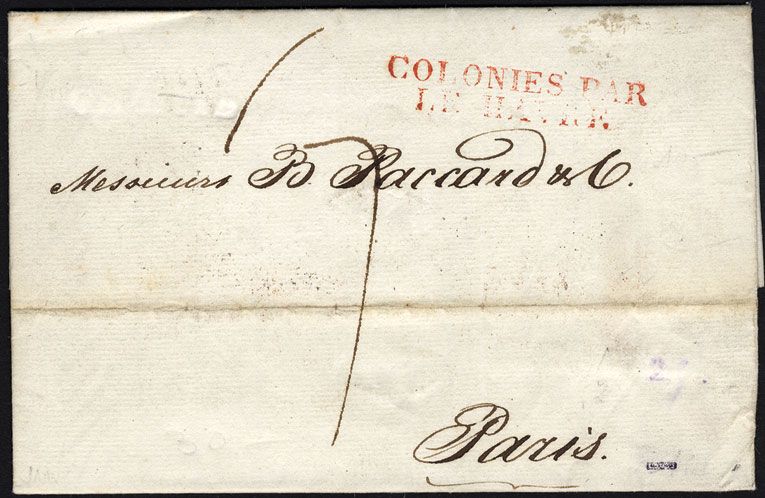 COLONIES PAR
LE HAVRE
Messieurs B. Paccard & C.
7
Paris.